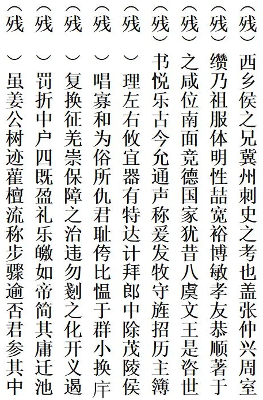 （残）西乡侯之兄冀州刺史之考也盖张仲兴周室
（残）缵乃祖服体明性喆宽裕博敏孝友恭顺著于
（残）之咸位南面竞德国家犹昔八虞文王是咨世
（残）书悦乐古今允通声称爰发牧守旌招历主簿
（残）理左右攸宜器有特达计拜郎中除茂陵侯
（残）唱寡和为俗所仇君耻侉比愠于群小换庍
（残）复换征羌崇保障之治违勿剗之化开义遏
（残）罚折中户四既盈礼乐皦如帝简其庸迁池
（残）虽姜公树迹藋檀流称步骤逾否君参其中